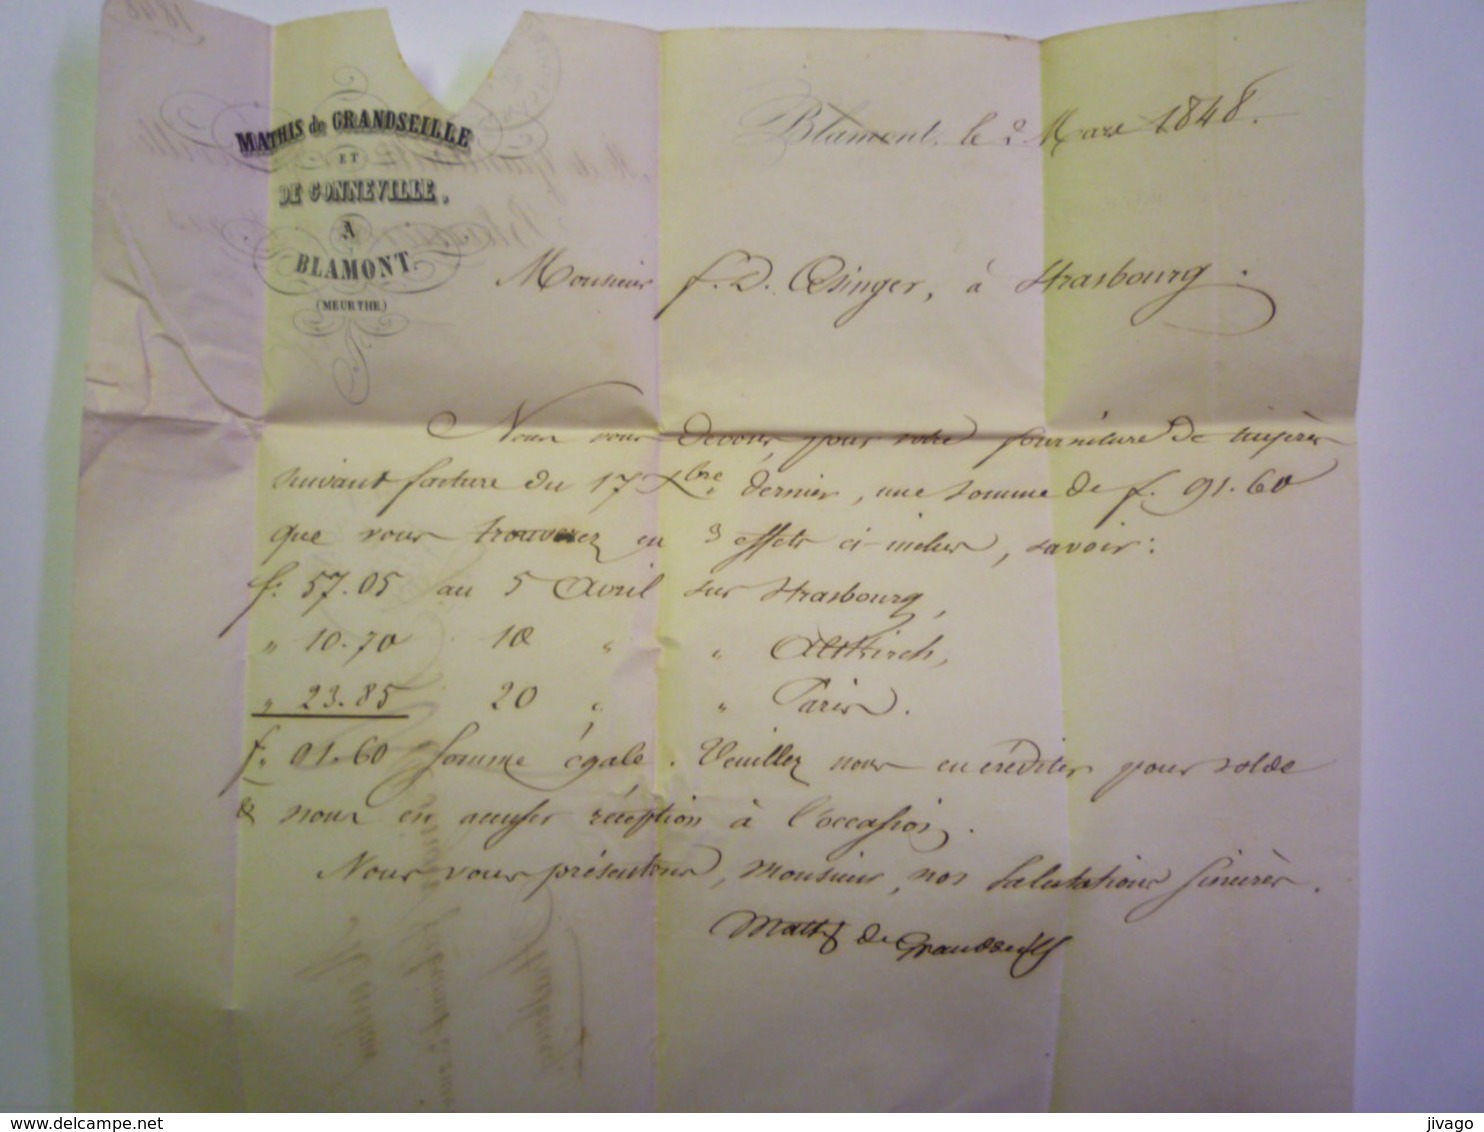 MATHIS de GRANDSEILLE
ET
DE GONNEVILLE,
A
BLAMONT.
(MEURTHE)
Blamont, le 2 Mars 1848.
Monsieur f. D. Œsinger, à Strasbourg.
Nous vous devons, pour votre fourniture de
suivant facture du 17 Xbre dernier, une somme de f. 91.60
que vous trouverez en 3 effets ci-inclus, savoir:
f. 57.05 au 5 Avril sur Strasbourg,
" 10.70 10 " " Altkirch,
" 23.85 20 " " Paris.
f. 91.60 somme égale. Veuillez nous en créditer pour solde
& nous en accuser réception à l'occasion.
Nous vous présentons, monsieur, nos salutations sincères.
Mathis de Grandseille
1848
jivago